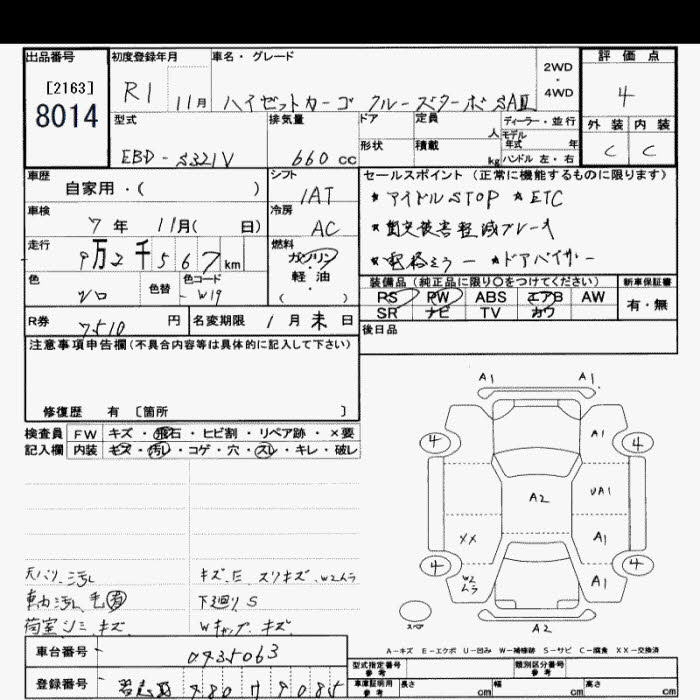 出品番号 初度登録年月 車名・グレード 評価点
[2163] R1 11月 ハイゼットカーゴ クルーズターボSAⅢ 2WD・4WD 4
8014
型式 排気量 ドア 定員 人 ディーラー・並行 外装 内装
EBD-S321V 660cc 形状 積載 kg モデル年式 年 C C
ハンドル 左・右
車歴 シフト セールスポイント (正常に機能するものに限ります)
自家用・( ) IAT *アイドルSTOP *ETC
車検 冷房
7年 11月( 日) AC *衝突被害軽減ブレーキ
走行 燃料
9万2千567km ガソリン・軽油・( ) *電格ミラー *ドアバイザー
色 色替 色コード 装備品 (純正品に限り○をつけてください) 新車保証書
シロ - W19 PS PW ABS エアB AW 有・無
SR ナビ TV カワ
R券 7510円 名変期限 1月末日 後日品
注意事項申告欄(不具合内容等は具体的に記入して下さい)
修復歴 有 〔箇所 〕
検査員 FW キズ・飛石・ヒビ割・リペア跡・×要
記入欄 内装 キズ・汚レ・コゲ・穴・スレ・キレ・破レ
A1 A1
4 A1 4
A2 UA1
XX A1
4 W2ムラ A1 4
スペア A2
天バリ シミ汚レ キズ、E スリキズ、W2ムラ
車内汚レ 毛 下廻りS
荷室シミ、キズ Wキャップ キズ
A-キズ E-エクボ U-凹み W-補修跡 S-サビ C-腐食 XX-交換済
車台番号 - 0435063
登録番号 480 9085
型式指定番号 参考 類別区分番号 参考
車庫証明用 参考 長さ cm 幅 cm 高さ cm